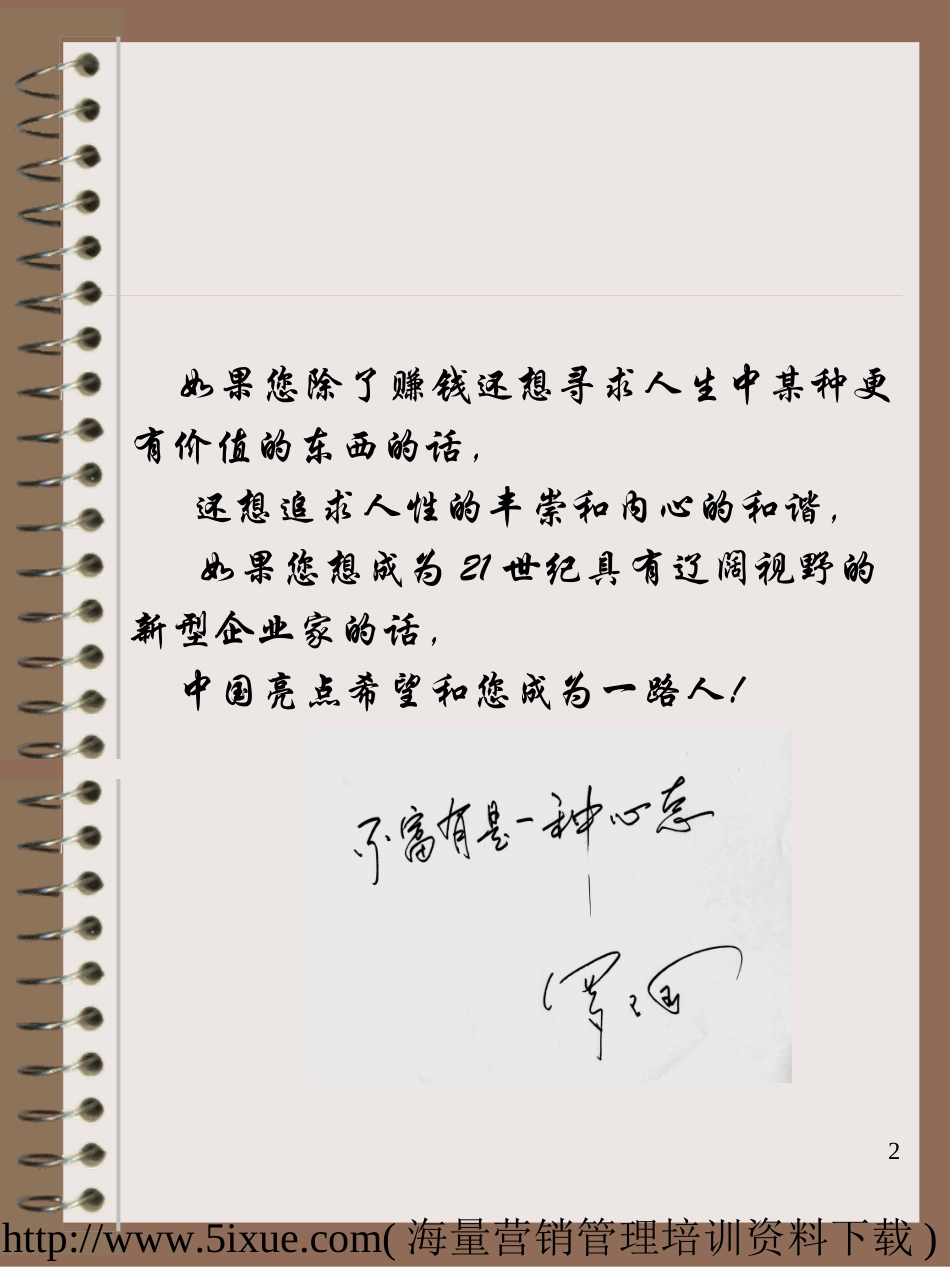 如果您除了赚钱还想寻求人生中某种更
有价值的东西的话，
还想追求人性的丰崇和内心的和谐，
如果您想成为 21 世纪具有辽阔视野的
新型企业家的话，
中国亮点希望和您成为一路人！
不富有是一种心态
2
http://www.5ixue.com( 海量营销管理培训资料下载 )